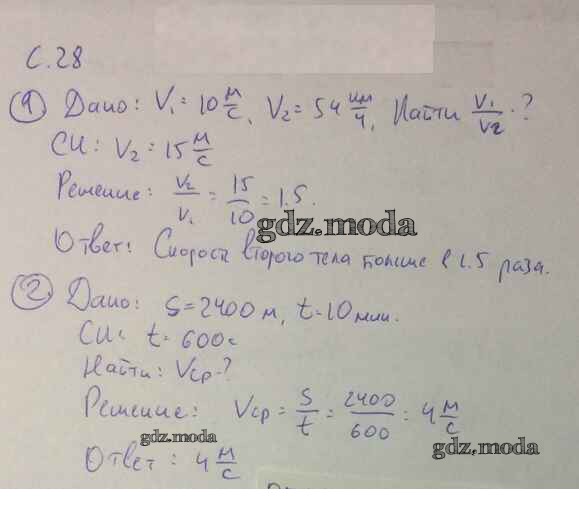 С. 28
① Дано: V₁ = 10 м/с, V₂ = 54 км/ч, Найти V₁/V₂ - ?
СИ: V₂ = 15 м/с
Решение: V₂/V₁ = 15/10 = 1.5.
gdz.moda
Ответ: Скорость второго тела больше в 1.5 раза.
② Дано: S = 2400 м, t = 10 мин.
СИ: t = 600 с
Найти: Vср - ?
Решение: Vср = S/t = 2400/600 = 4 м/с
gdz.moda
gdz.moda
Ответ: 4 м/с